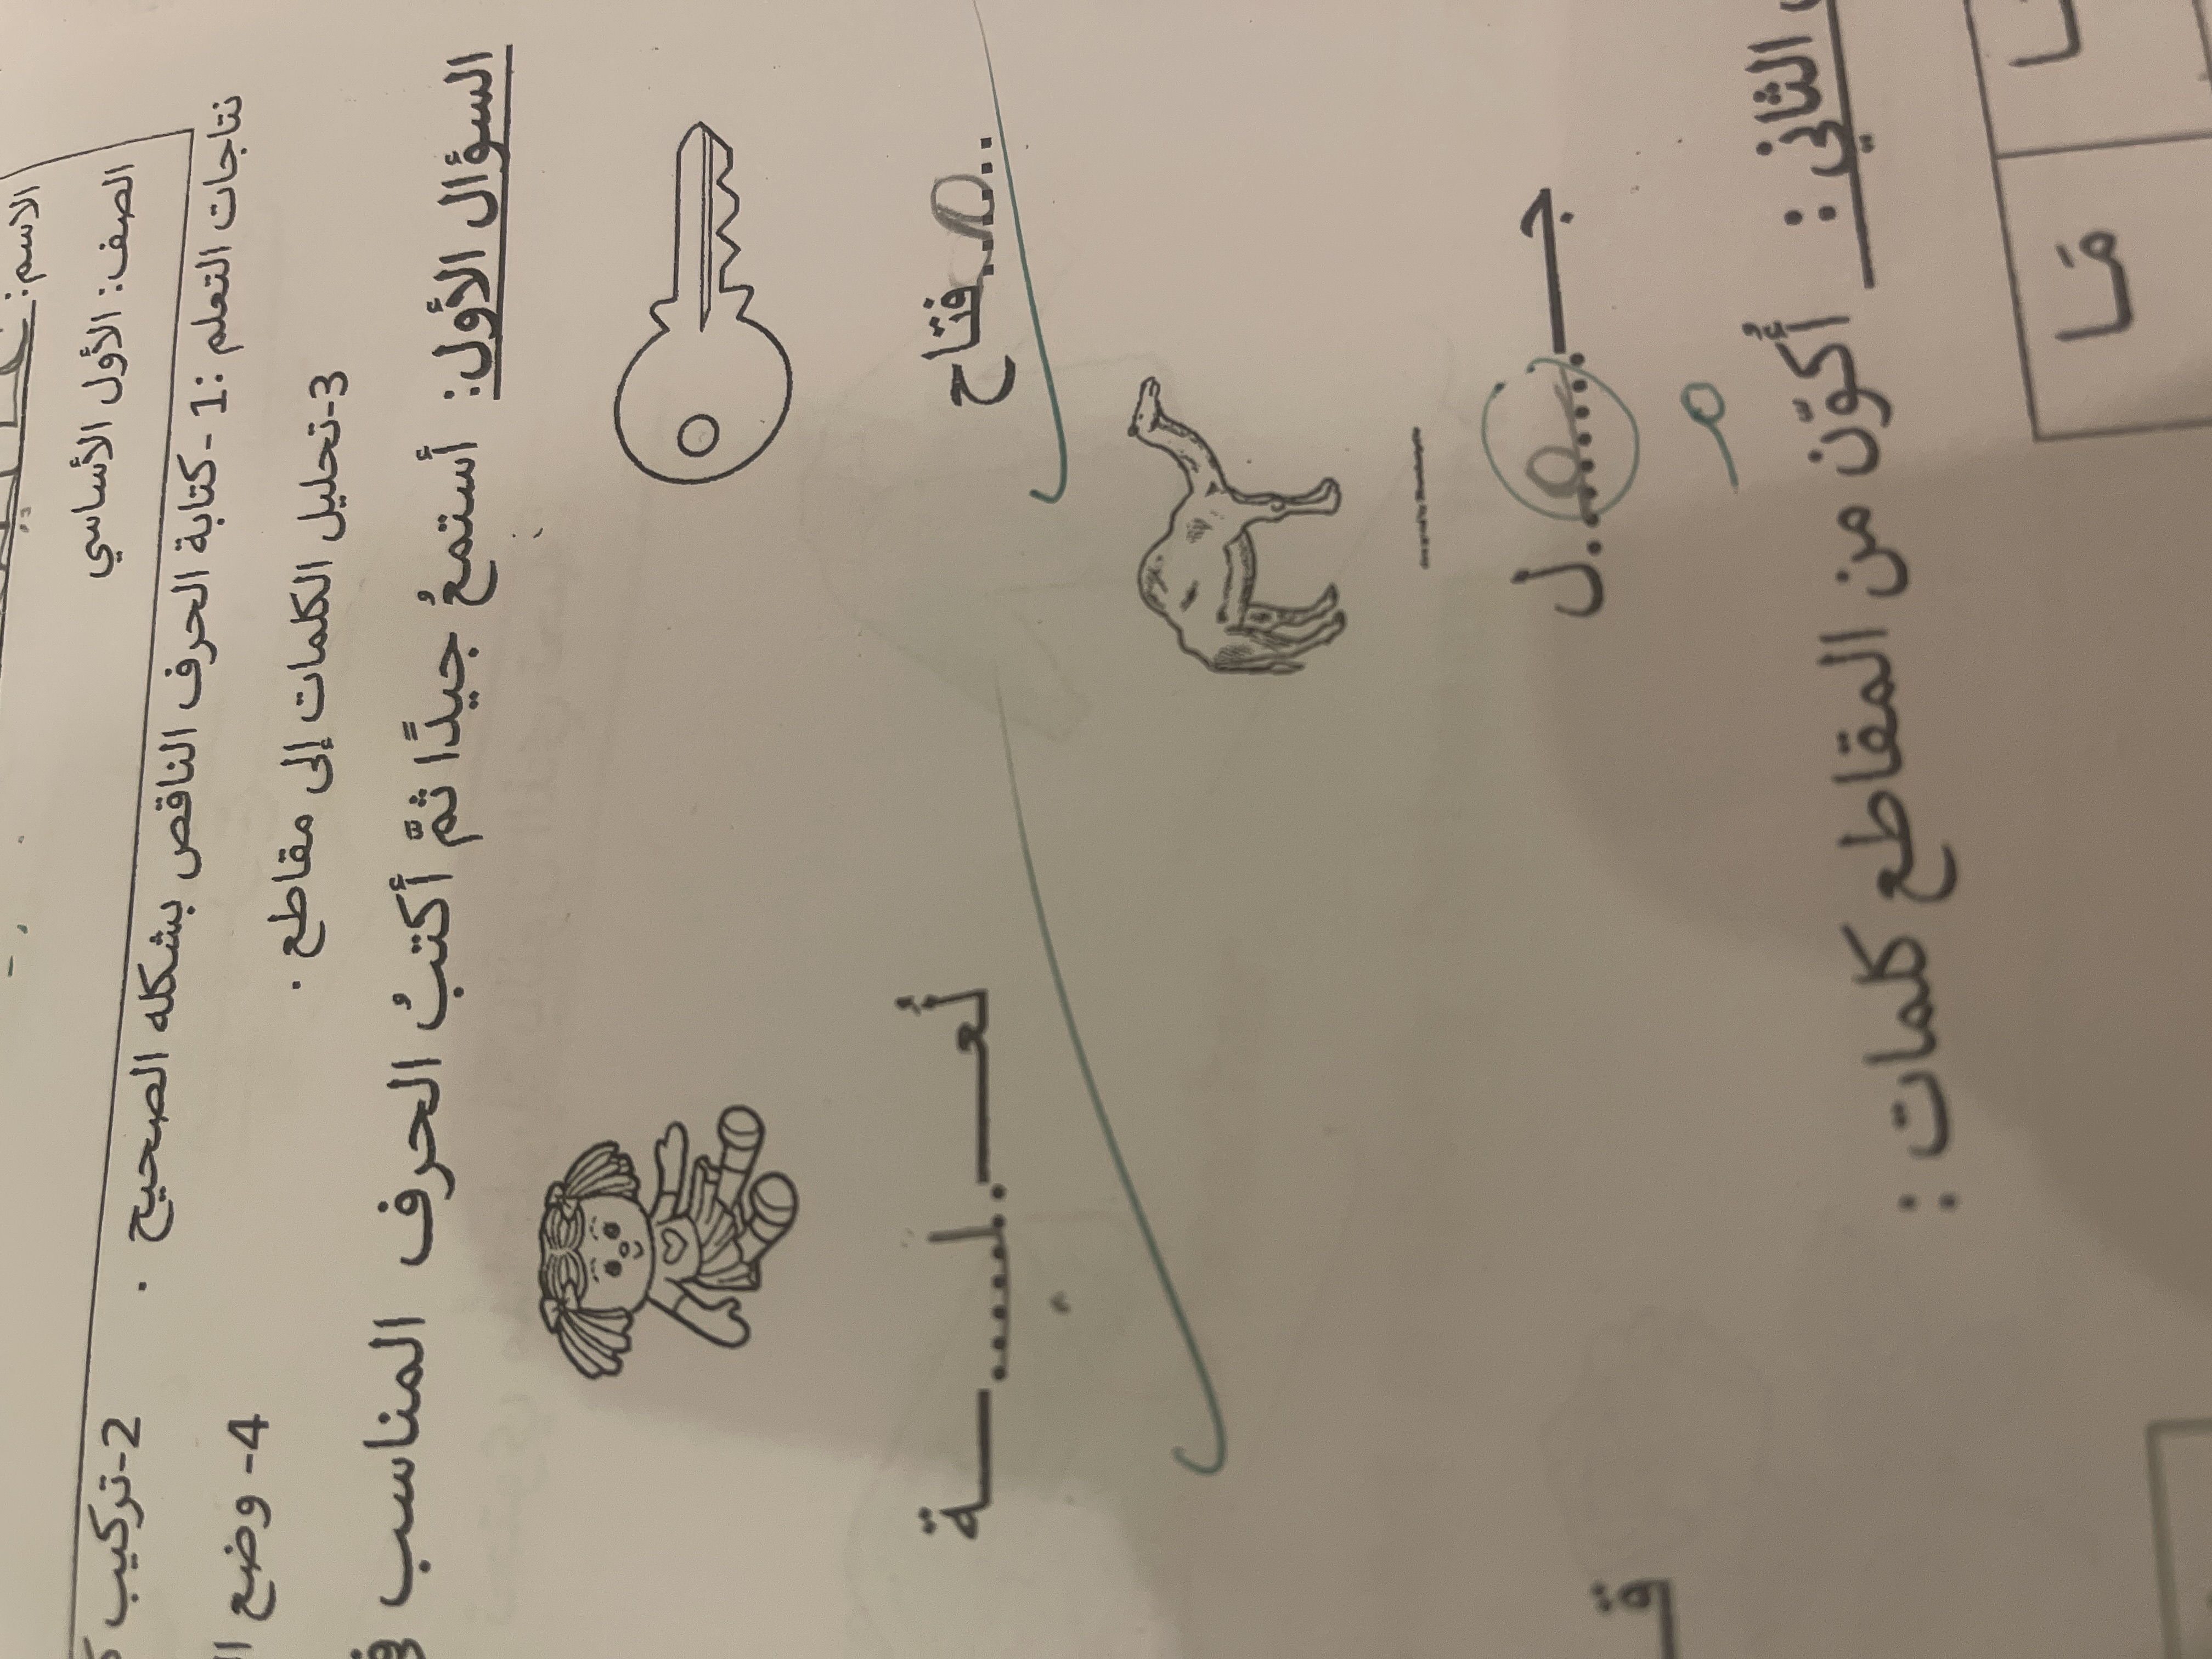 الاسم:
الصف: الأول الأساسي
نتاجات التعلم :1-كتابة الحرف الناقص بشكله الصحيح . 2-تركيب
3-تحليل الكلمات إلى مقاطع . 4- وضع
السؤال الأول: أستمعُ جيدًا ثمّ أكتبُ الحرف المناسب
م..فتاح لُعـــبـــة
جـــمـ..ل
م
الثاني : أُكوّن من المقاطع كلمات :
مَـا